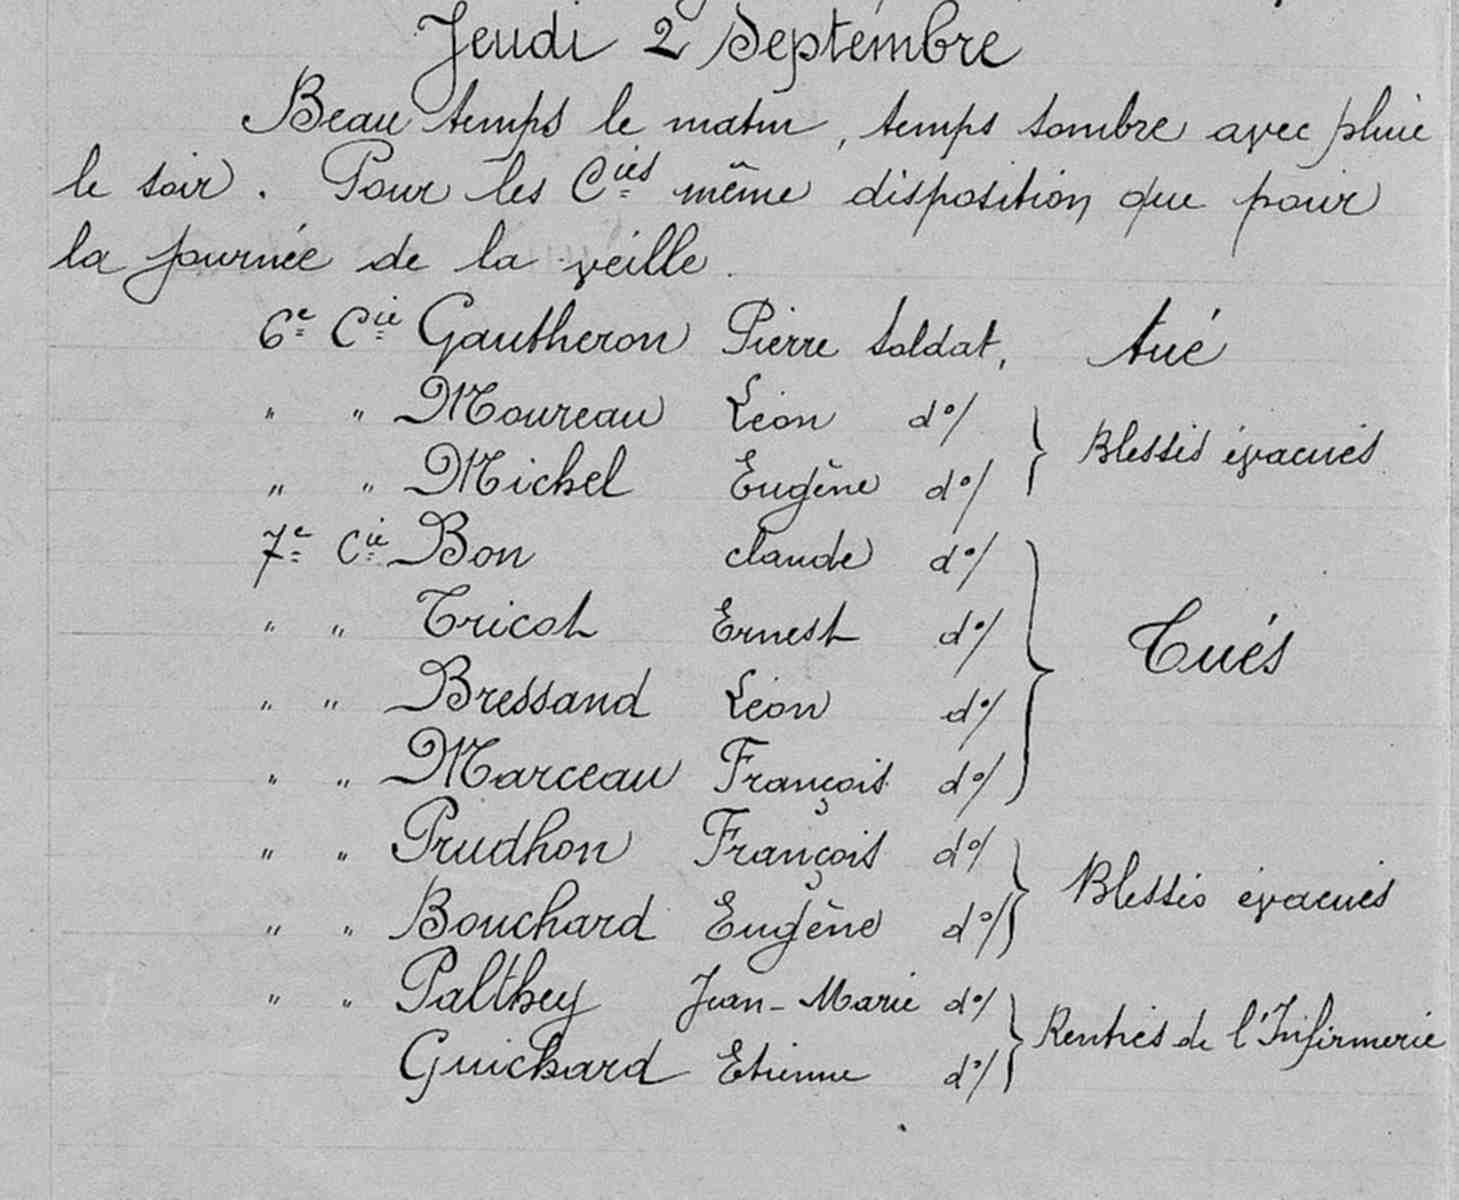 Jeudi 2 Septembre
Beau temps le matin, temps sombre avec pluie
le soir. Pour les Cies même disposition que pour
la journée de la veille.
6e Cie Gautheron Pierre Soldat, tué
" " Moureau Léon do/
" " Michel Eugène do/
Blessés évacués
7e Cie Bon claude do/
" " Tricot Ernest do/
" " Bressand Léon do/
" " Marceau François do/
Tués
" " Prudhon François do/
" " Bouchard Eugène do/
Blessés évacués
" " Palthey Jean-Marie do/
Guichard Etienne do/
Rentrés de l'Infirmerie